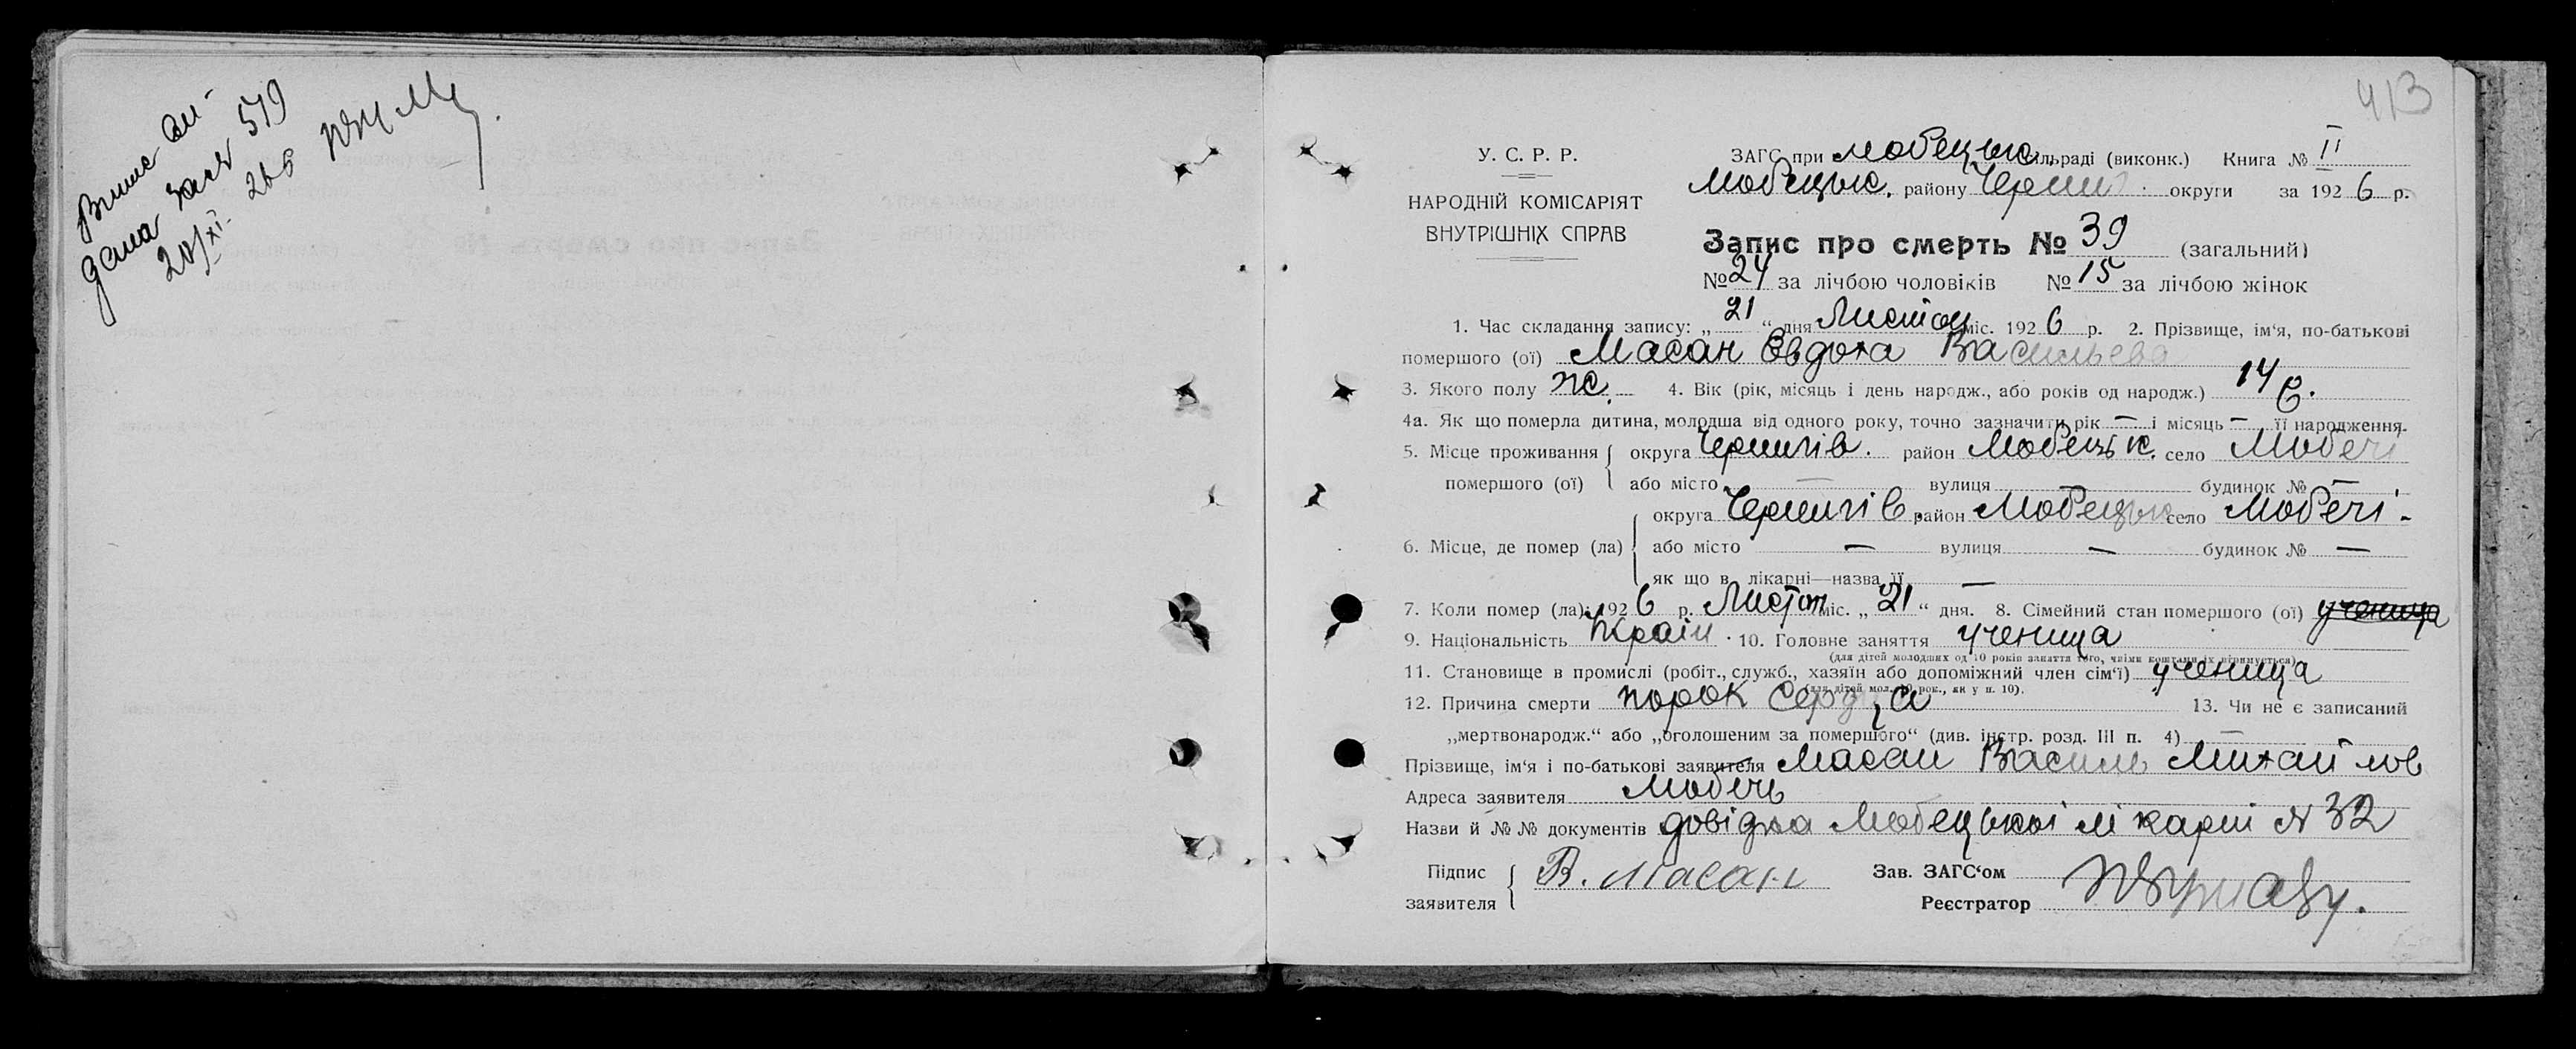 Випис
дана 579
20/XI 26 б
413
У. С. Р. Р.
НАРОДНІЙ КОМІСАРІЯТ
ВНУТРІШНІХ СПРАВ
ЗАГС при Любецьк. сільраді (виконк.) Книга № II
Любецьк. району Черниг. округи за 1926 р.
Запис про смерть № 39 (загальний)
№ 24 за лічбою чоловіків № 15 за лічбою жінок
1. Час складання запису: „21“ дня Листоп міс. 1926 р. 2. Прізвище, ім‘я, по-батькові
помершого (ої) Масан Евдоха Васильева
3. Якого полу ж. 4. Вік (рік, місяць і день народж., або років од народж.) 14 р.
4а. Як що померла дитина, молодша від одного року, точно зазначити рік — і місяць — її народження.
5. Місце проживання помершого (ої) округа Чернигів. район Любецьк. село Любечі
або місто — вулиця — будинок № —
6. Місце, де помер (ла) округа Чернигів. район Любецьк село Любечі -
або місто — вулиця — будинок № —
як що в лікарні—назва її —
7. Коли помер (ла): 1926 р. Листоп міс. „21“ дня. 8. Сімейний стан помершого (ої) ученица
9. Національність Украін. 10. Головне заняття ученица
(для дітей молодших од 10 років заняття того, чиїми коштами їх утримується)
11. Становище в промислі (робіт., служб., хазяїн або допоміжний член сім‘ї) ученица
(для дітей мол. 10 рок., як у п. 10).
12. Причина смерти порок сердца 13. Чи не є записаний
„мертвонародж.“ або „оголошеним за помершого“ (див. інстр. розд. III п. 4) —
Прізвище, ім‘я і по-батькові заявителя Масан Василь Михайлов
Адреса заявителя Любечь
Назви й №№ документів довідка Любецькоі лікарні № 32
Підпис заявителя В. Масан
Зав. ЗАГС‘ом
Реєстратор